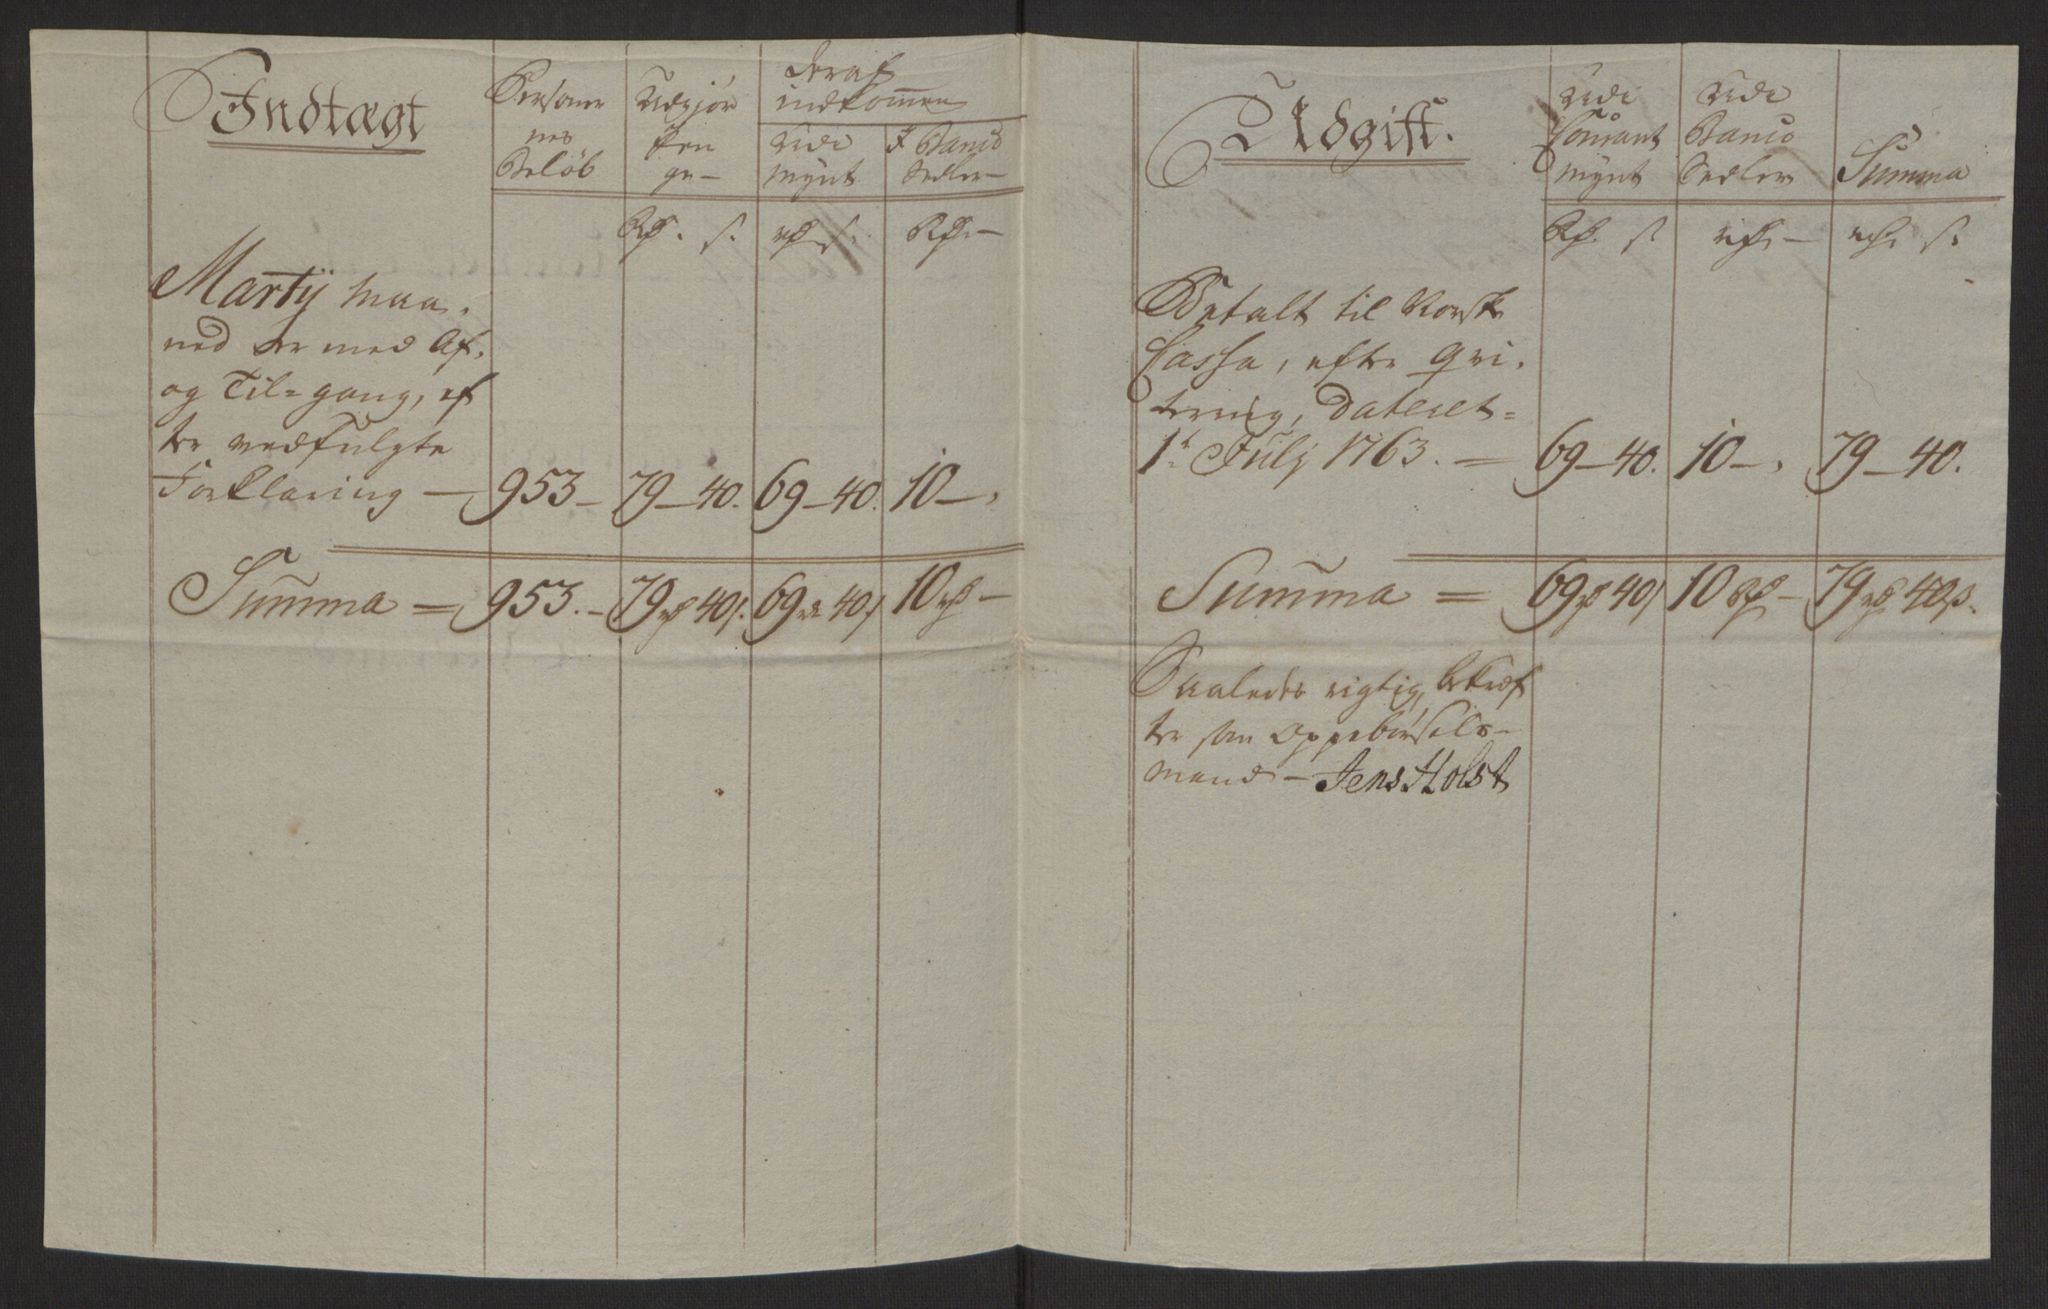 Indtægt
Personer
nes
Beløb
Udgjør
Pen
ge-
deraf
indkommen
Udi
mynt
I Banco
Sedler-
Rd. s.
rd. s.
Rd. -
Martij maa,
ned er med Af,
og Til=gang, ef
ter vedfulgte
Forklaring - 953 - 79 - 40. 69 - 40. 10 -,
Summa = 953. - 79 rd 40 s. 69 rd 40 s 10 rd -
Udgift.
Udi
Courant
mynt
Udi
Banco
Sedler
Summa
Rd. s.
rd. -
rd. s.
Betalt til Norske
Cassa, efter Qvi,
tering, dateret=
1t Julj 1763. - 69 - 40. 10 -, 79 - 40.
Summa = 69 rd 40 s 10 Rd - 79 rd 40 s.
Saaledes rigtig, bekræf
ter som Oppebørsels-
mand - Jens Holst